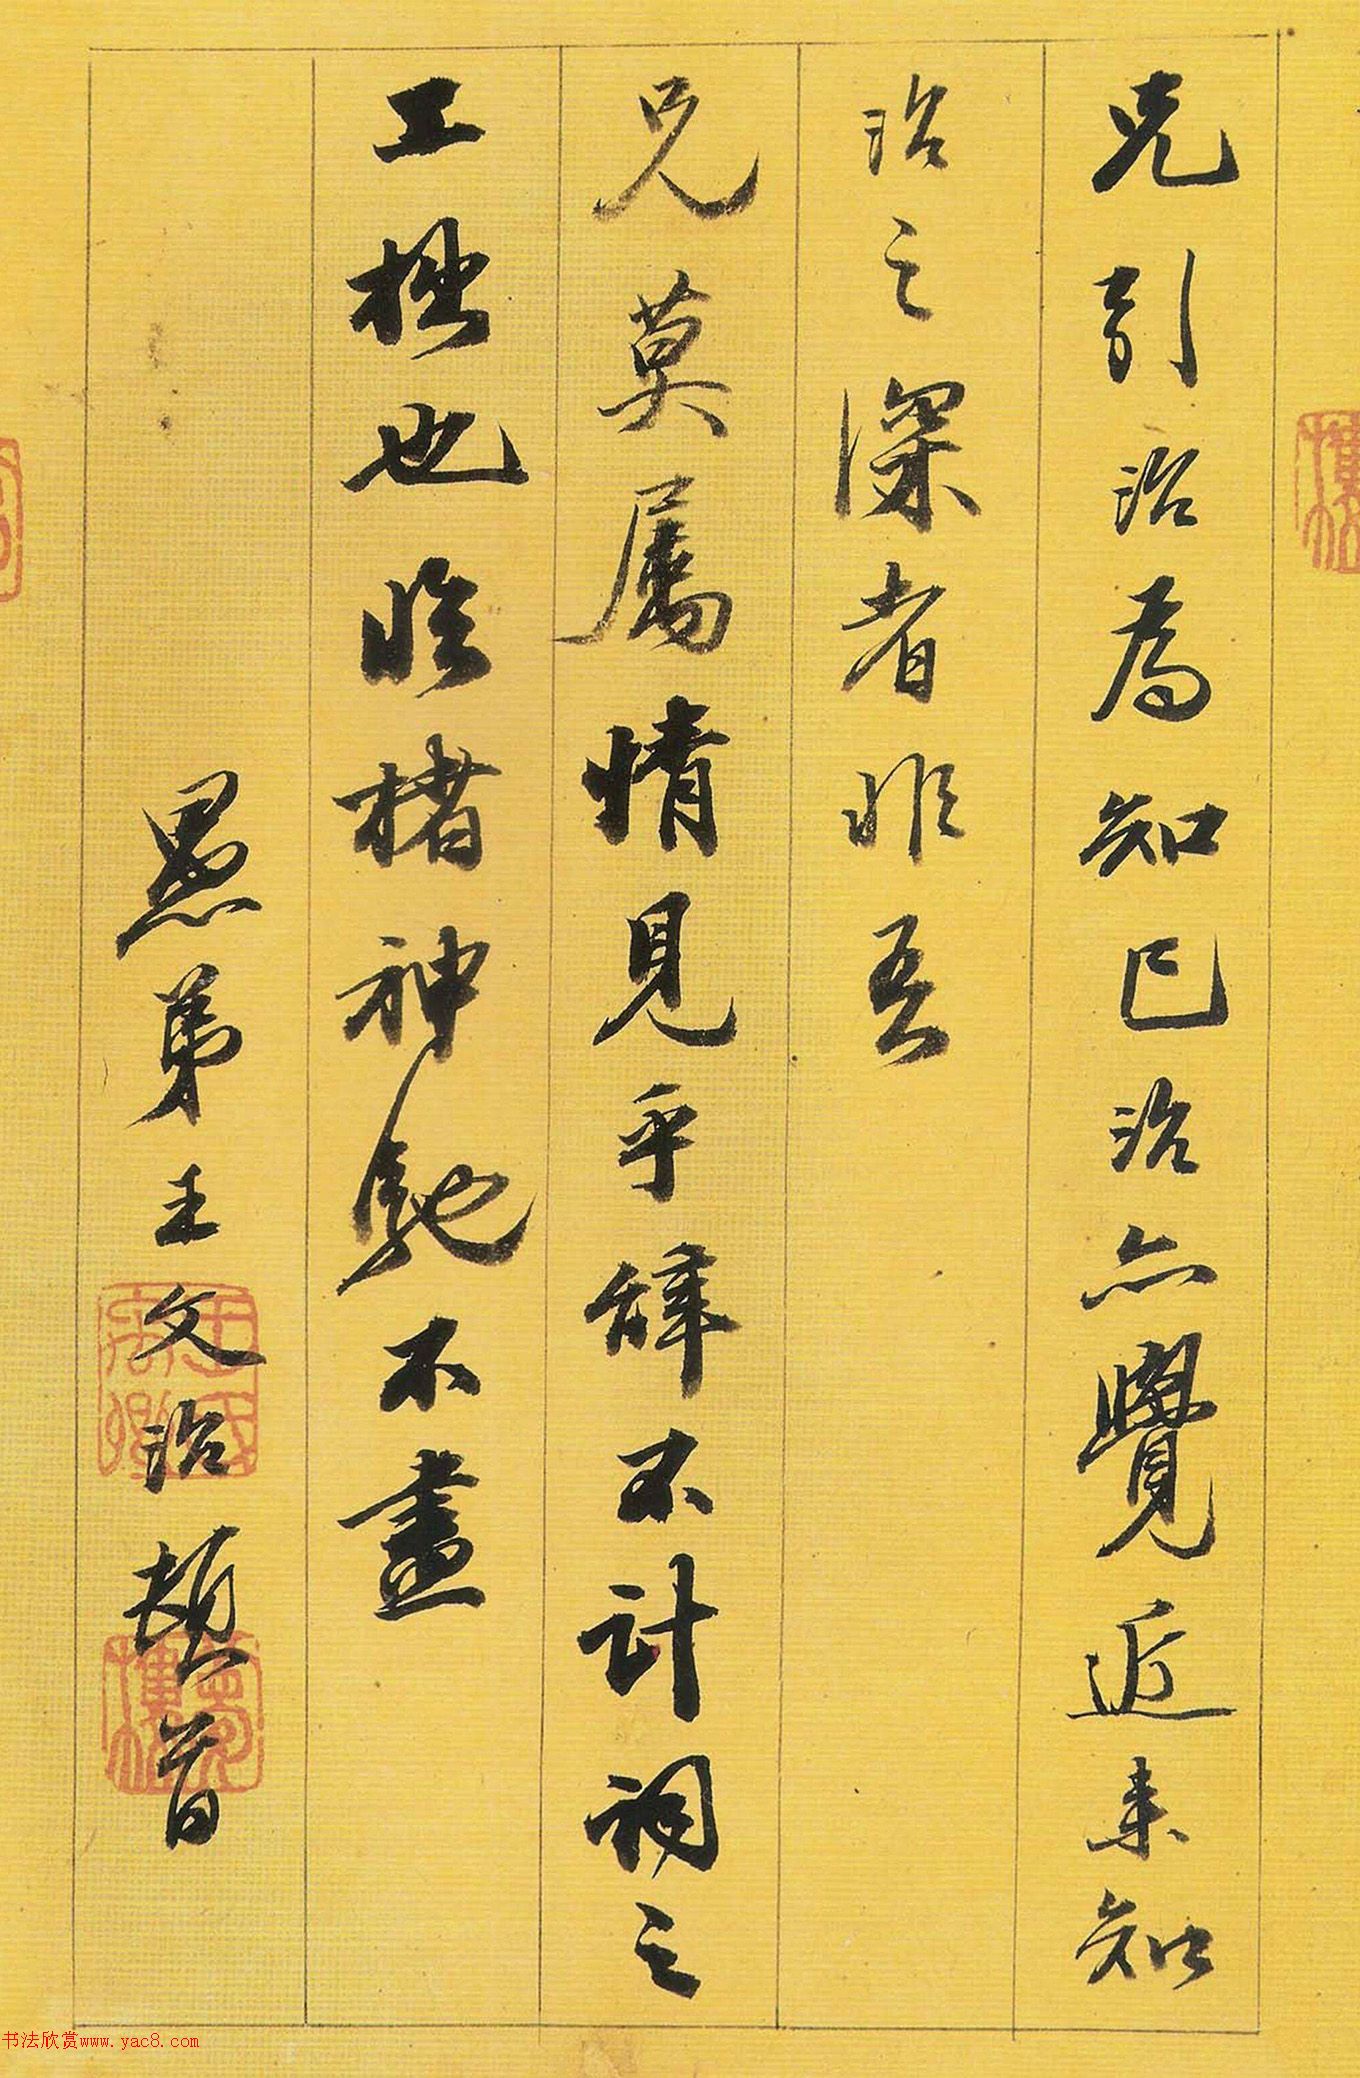 兄引治為知己治亦覺近来知
治之深者非吾
兄莫屬情見乎辭不計詞之
工拙也臨楮神馳不盡
愚弟王文治頓首
王國
夢樓
书法欣赏www.yac8.com